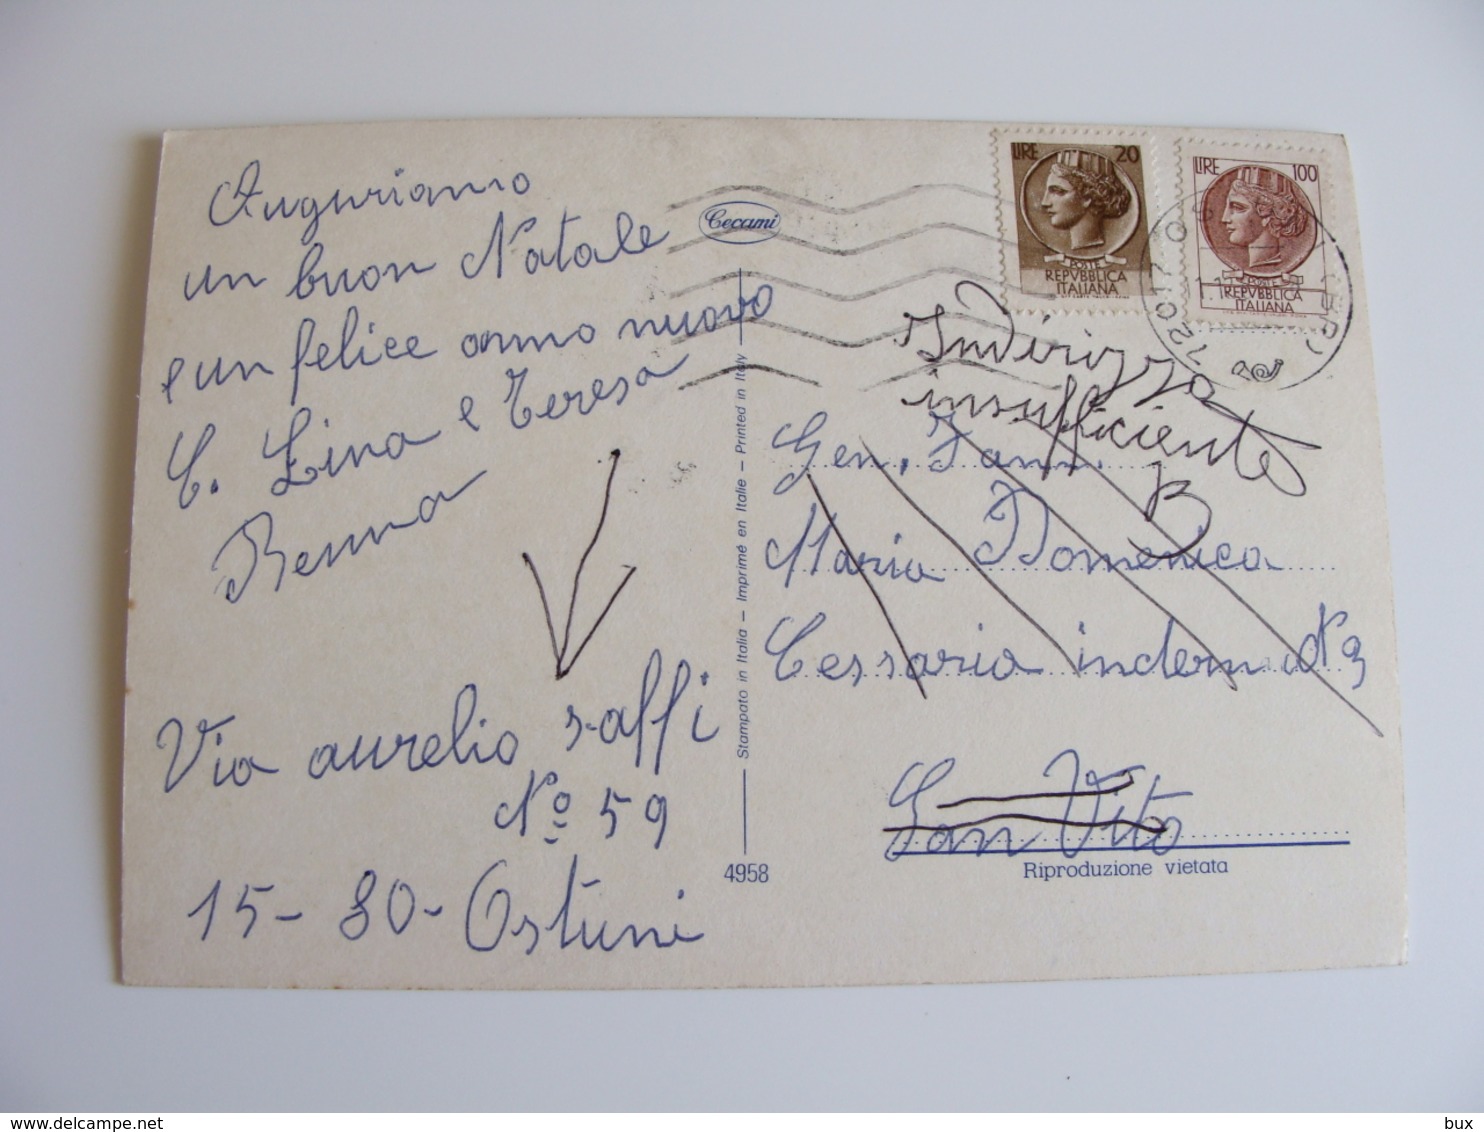 Auguriamo
un buon Natale
e un felice anno nuovo
C. Lina e Teresa
Renna
Via aurelio saffi
Nº 59
15-80-Ostuni
Cecami
Stampato in Italia – Imprimé en Italie – Printed in Italy
4958
LIRE 20
POSTE
REPVBBLICA
ITALIANA
LIRE 100
POSTE
REPVBBLICA
ITALIANA
72017 OSTUNI (BR)
Indirizzo
insufficiente
Gen. Fam.
Maria Domenica
Cessario N 9
San Vito
Riproduzione vietata
bux